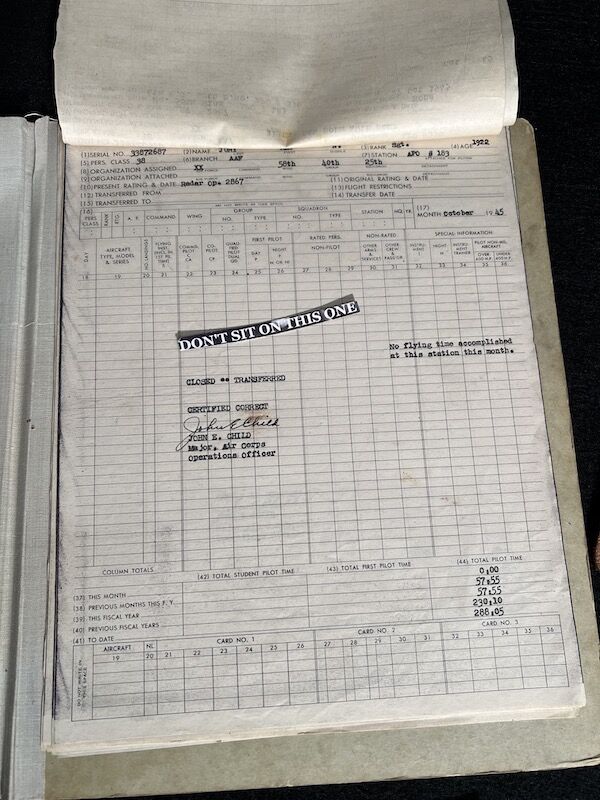 (1) SERIAL NO. 33872687 (2) NAME (3) RANK Sgt. (4) AGE 1922
(5) PERS. CLASS 38 (6) BRANCH AAF (7) STATION APO # 183
(8) ORGANIZATION ASSIGNED XX 58th 40th 25th
(9) ORGANIZATION ATTACHED
(10) PRESENT RATING & DATE Radar Op. 2867 (11) ORIGINAL RATING & DATE
(12) TRANSFERRED FROM (13) FLIGHT RESTRICTIONS
(15) TRANSFERRED TO (14) TRANSFER DATE
(16) PERS. CLASS RANK RTG. A. F. COMMAND WING GROUP NO. TYPE SQUADRON NO. TYPE STATION MO. YR. (17) MONTH October 1945
DAY AIRCRAFT TYPE, MODEL & SERIES NO. LANDINGS FLYING INST. COMMD. PILOT C CA CO-PILOT CP QUALIFIED PILOT DUAL QD FIRST PILOT DAY P NIGHT N OR NI RATED PERS. NON-PILOT NON-RATED OTHER ARMS & SERVICES OTHER CREW & PASS'GR SPECIAL INFORMATION INSTRUMENT I NIGHT N INSTRUMENT TRAINER PILOT NON-MIL. AIRCRAFT OVER 400 H.P. UNDER 400 H.P.
18 19 20 21 22 23 24 25 26 27 28 29 30 31 32 33 34 35 36
DON'T SIT ON THIS ONE
No flying time accomplished
at this station this month.
CLOSED -- TRANSFERRED
CERTIFIED CORRECT
John E Child
JOHN E. CHILD
Major, Air Corps
Operations Officer
COLUMN TOTALS
(42) TOTAL STUDENT PILOT TIME (43) TOTAL FIRST PILOT TIME (44) TOTAL PILOT TIME
(37) THIS MONTH 0:00
(38) PREVIOUS MONTHS THIS F. Y. 57:55
(39) THIS FISCAL YEAR 57:55
(40) PREVIOUS FISCAL YEARS 230:10
(41) TO DATE 288:05
AIRCRAFT NL CARD NO. 1 CARD NO. 2 CARD NO. 3
19 20 21 22 23 24 25 26 27 28 29 30 31 32 33 34 35 36
DO NOT WRITE IN THIS SPACE